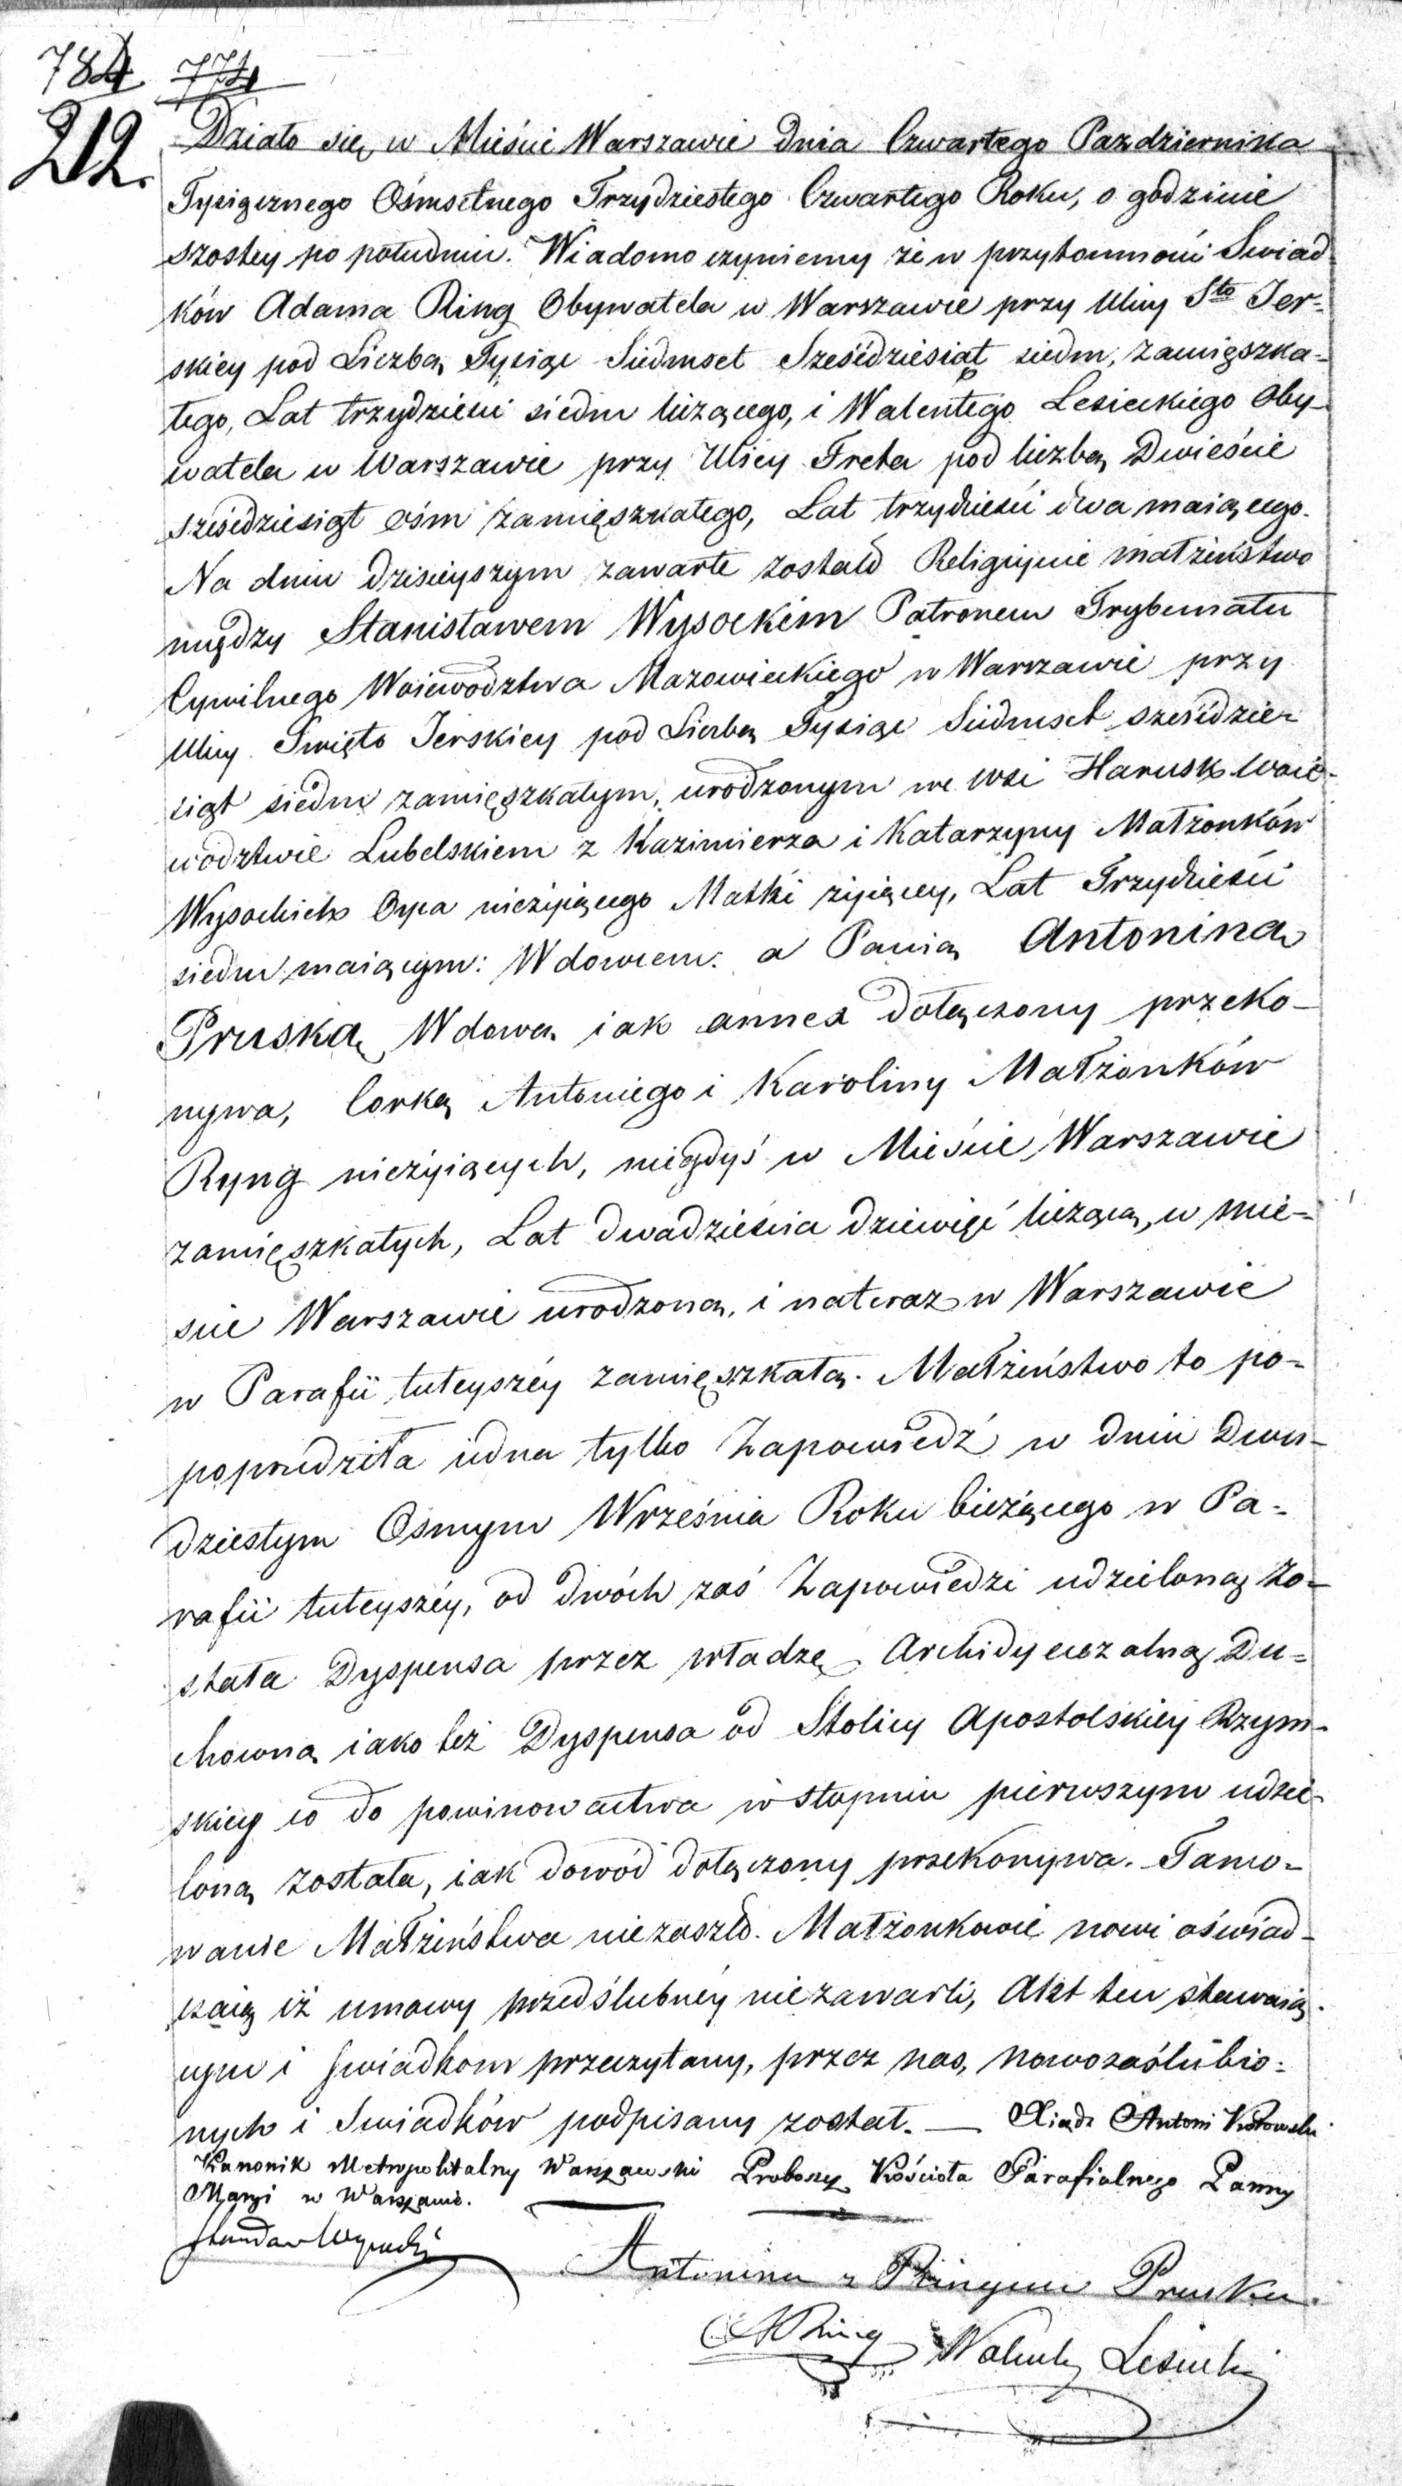 784 774
212.
Działo się w Mieście Warszawie dnia Czwartego Pazdziernika
Tysiącznego Ośmsetnego Trzydziestego Czwartego Roku, o godzinie
szostey po południu. Wiadomo czyniemy że w przytomności Swiad
ków Adama Ring Obywatela w Warszawie przy Ulicy Sto Jer-
skiey pod Liczbą Tysiąc Siedmset Sześćdziesiąt siedm, zamięszka-
łego, Lat trzydzieści siedm liczącego, i Walentego Lesieckiego Oby-
watela w Warszawie przy Ulicy Freta pod liczbą Dwieście
sześćdziesiąt ośm zamięszkałego, Lat trzydzieści dwa maiącego.
Na dniu dzisieyszym zawarte zostało Religijnie małżeństwo
między Stanisławem Wysockim Patronem Trybunału
Cywilnego Woiewództwa Mazowieckiego w Warszawie przy
Ulicy Święto Jerskiey pod Liczbą Tysiąc Siedmset sześćdzie-
siąt siedm zamięszkałym, urodzonym we wsi Harusk Woie-
wództwie Lubelskiem z Kazimierza i Katarzyny Małżonków
Wysockich Oyca nieżyiącego Matki żyiącey, Lat Trzydzieści
siedm maiącym: Wdowcem: a Panią Antoniną
Pruską Wdową iak annex dołączony przeko-
nywa, Corką Antoniego i Karoliny Małżonków
Ryng nieżyiących, niegdyś w Mieście Warszawie
zamięszkałych, Lat dwadzieścia dziewięć liczącą, w mie-
ście Warszawie urodzoną, i nateraz w Warszawie
w Parafii tuteyszéy zamięszkałą. Małżeństwo to po-
poprzedziła iedna tylko Zapowiedź w dniu Dwu-
dziestym Osmym Września Roku bieżącego w Pa-
rafii tuteyszéy, od dwóch zaś Zapowiedzi udzieloną zo-
stała Dyspensa przez władzę Archidyecezalną Du-
chowną iako też Dyspensa od Stolicy Apostolskiey Rzym-
skiey co do powinowactwa w stopniu pierwszym udzie-
loną została, iak dowód dołączony przekonywa. Tamo-
wanie Małżeństwa niezaszło. Małżonkowie nowi oświad-
czaią iż umowy przedślubnéy niezawarli, Akt ten stawaią-
cym i swiadkom przeczytany, przez nas, nowozaślubio-
nych i Swiadków podpisany został. — Xiądz Antoni Kotowski
Kanonik Metropolitalny Warszawski Proboszcz Kościoła Parafialnego Panny
Maryi w Warszawie.
Stanisław Wysocki
Antonina z Ringów Pruska.
A Ring Walenty Lesiecki